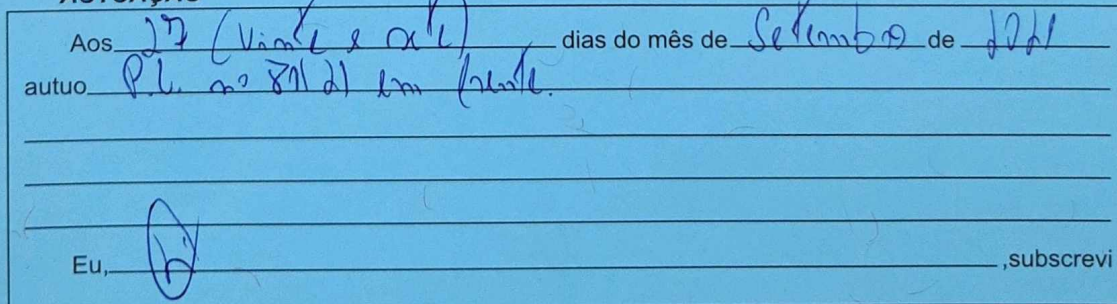 AUTUAÇÃO
Aos 27 (Vinte e sete) dias do mês de Setembro de 2021
autuo P.L. nº 81/21 em frente.
Eu, ,subscrevi